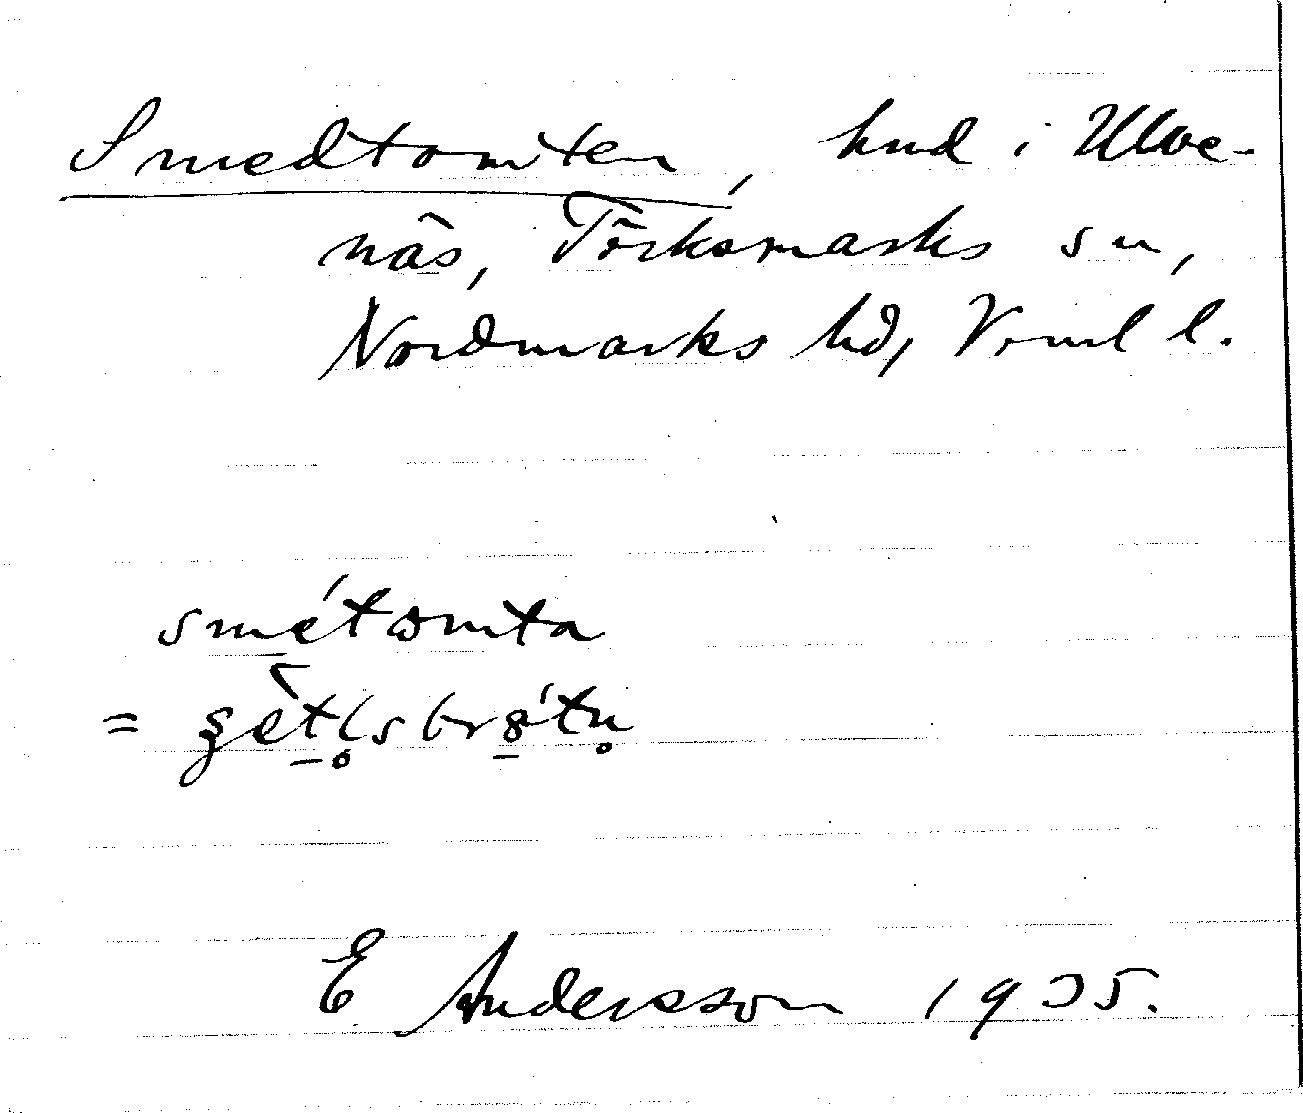 Smedtomten, hmd i Ulve-
näs, Törksmarks sn,
Nordmarks hd, Vrml l.
smétomta
=
E Andersson 1935.